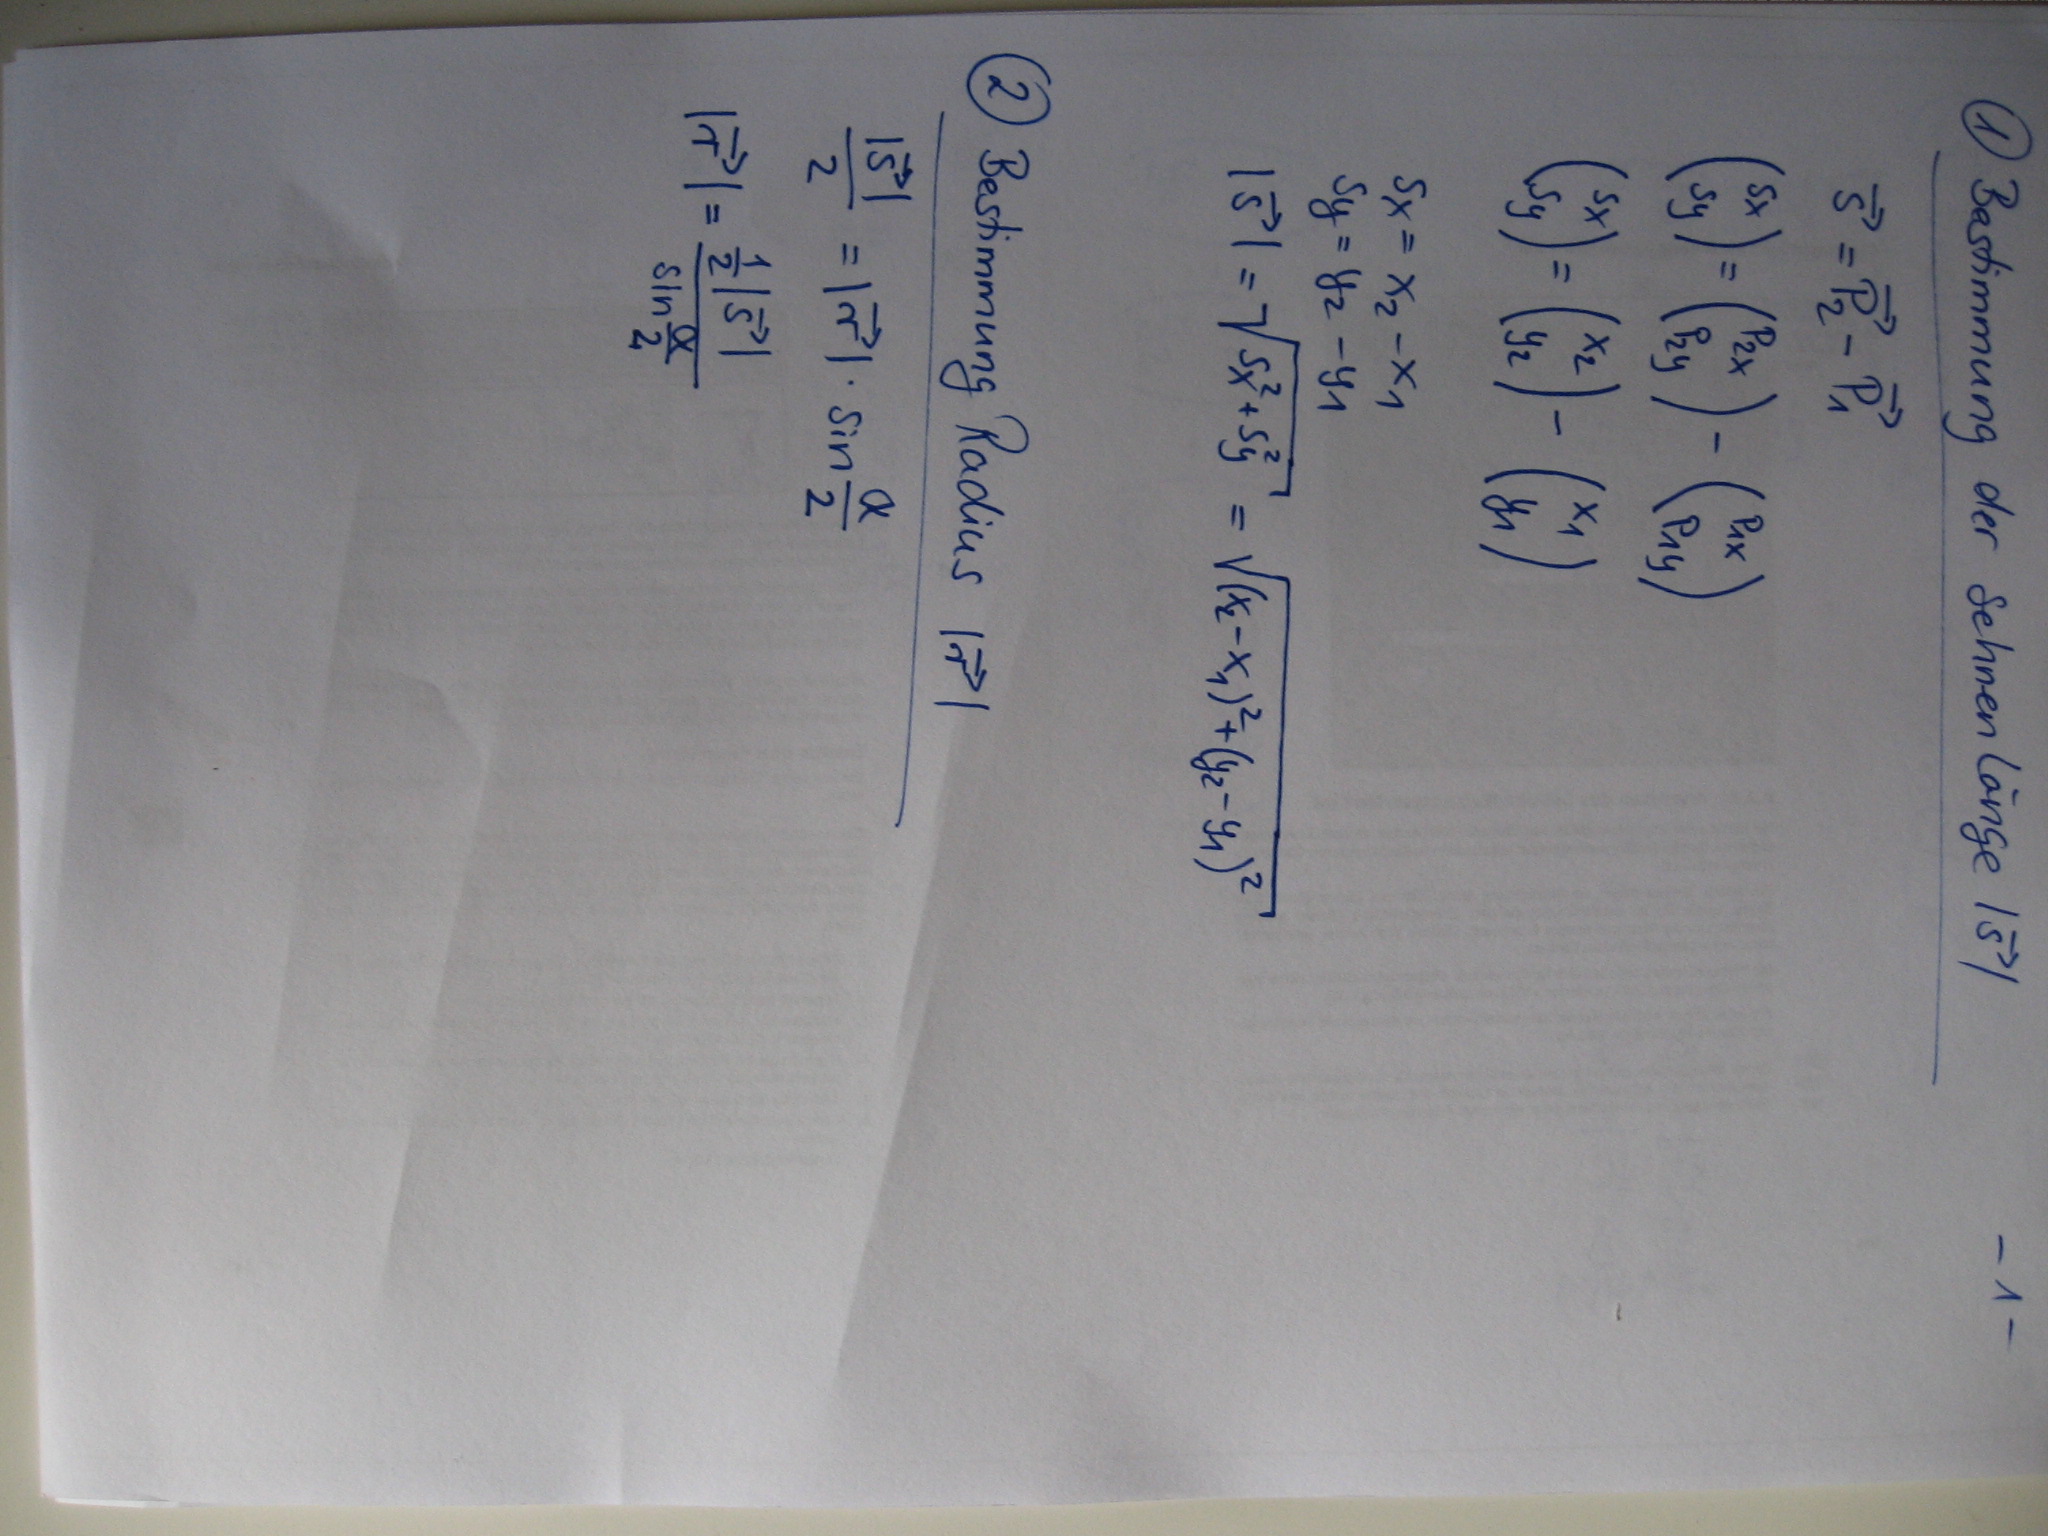 - 1 -
① Bestimmung der Sehnenlänge |s⃗|
s⃗ = P⃗₂ - P⃗₁
(sx sy) = (P2x P2y) - (P1x P1y)
(sx sy) = (x₂ y₂) - (x₁ y₁)
sx = x₂ - x₁
sy = y₂ - y₁
|s⃗| = √(sx² + sy²) = √((x₂ - x₁)² + (y₂ - y₁)²)
② Bestimmung Radius |r⃗|
|s⃗|/2 = |r⃗| · sin α/2
|r⃗| = ½|s⃗| / sin α/2